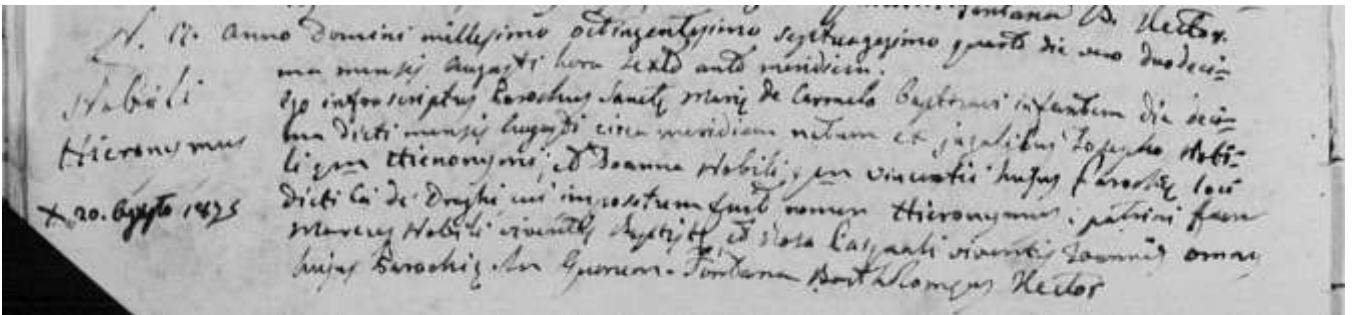 Fontana B. Hector.
N. 17. Anno Domini millesimo octingentesimo septuagesimo quarto die vero duodeci=
ma mensis Augusti hora sexta ante meridiem.
Nobili
Hieronymus
Ego infrascriptus Parochus Sanctę Marię de Carmelo baptizavi infantem die deci=
ma dicti mensis Augusti circa meridiem natum ex jugalibus Josepho Nobi=
li qm Hieronymi, et Joanna Nobili, qm Vincentii hujus Parochię loci
+ 20. Agosto 1875
dicti Cà de Draghi cui impositum fuit nomen Hieronymus; patrini fuere
Marcus Nobili viventis Baptistę, et Rosa viventis Joannis omnes
hujus Parochię. In quorum. Fontana Bartholomęus Hector